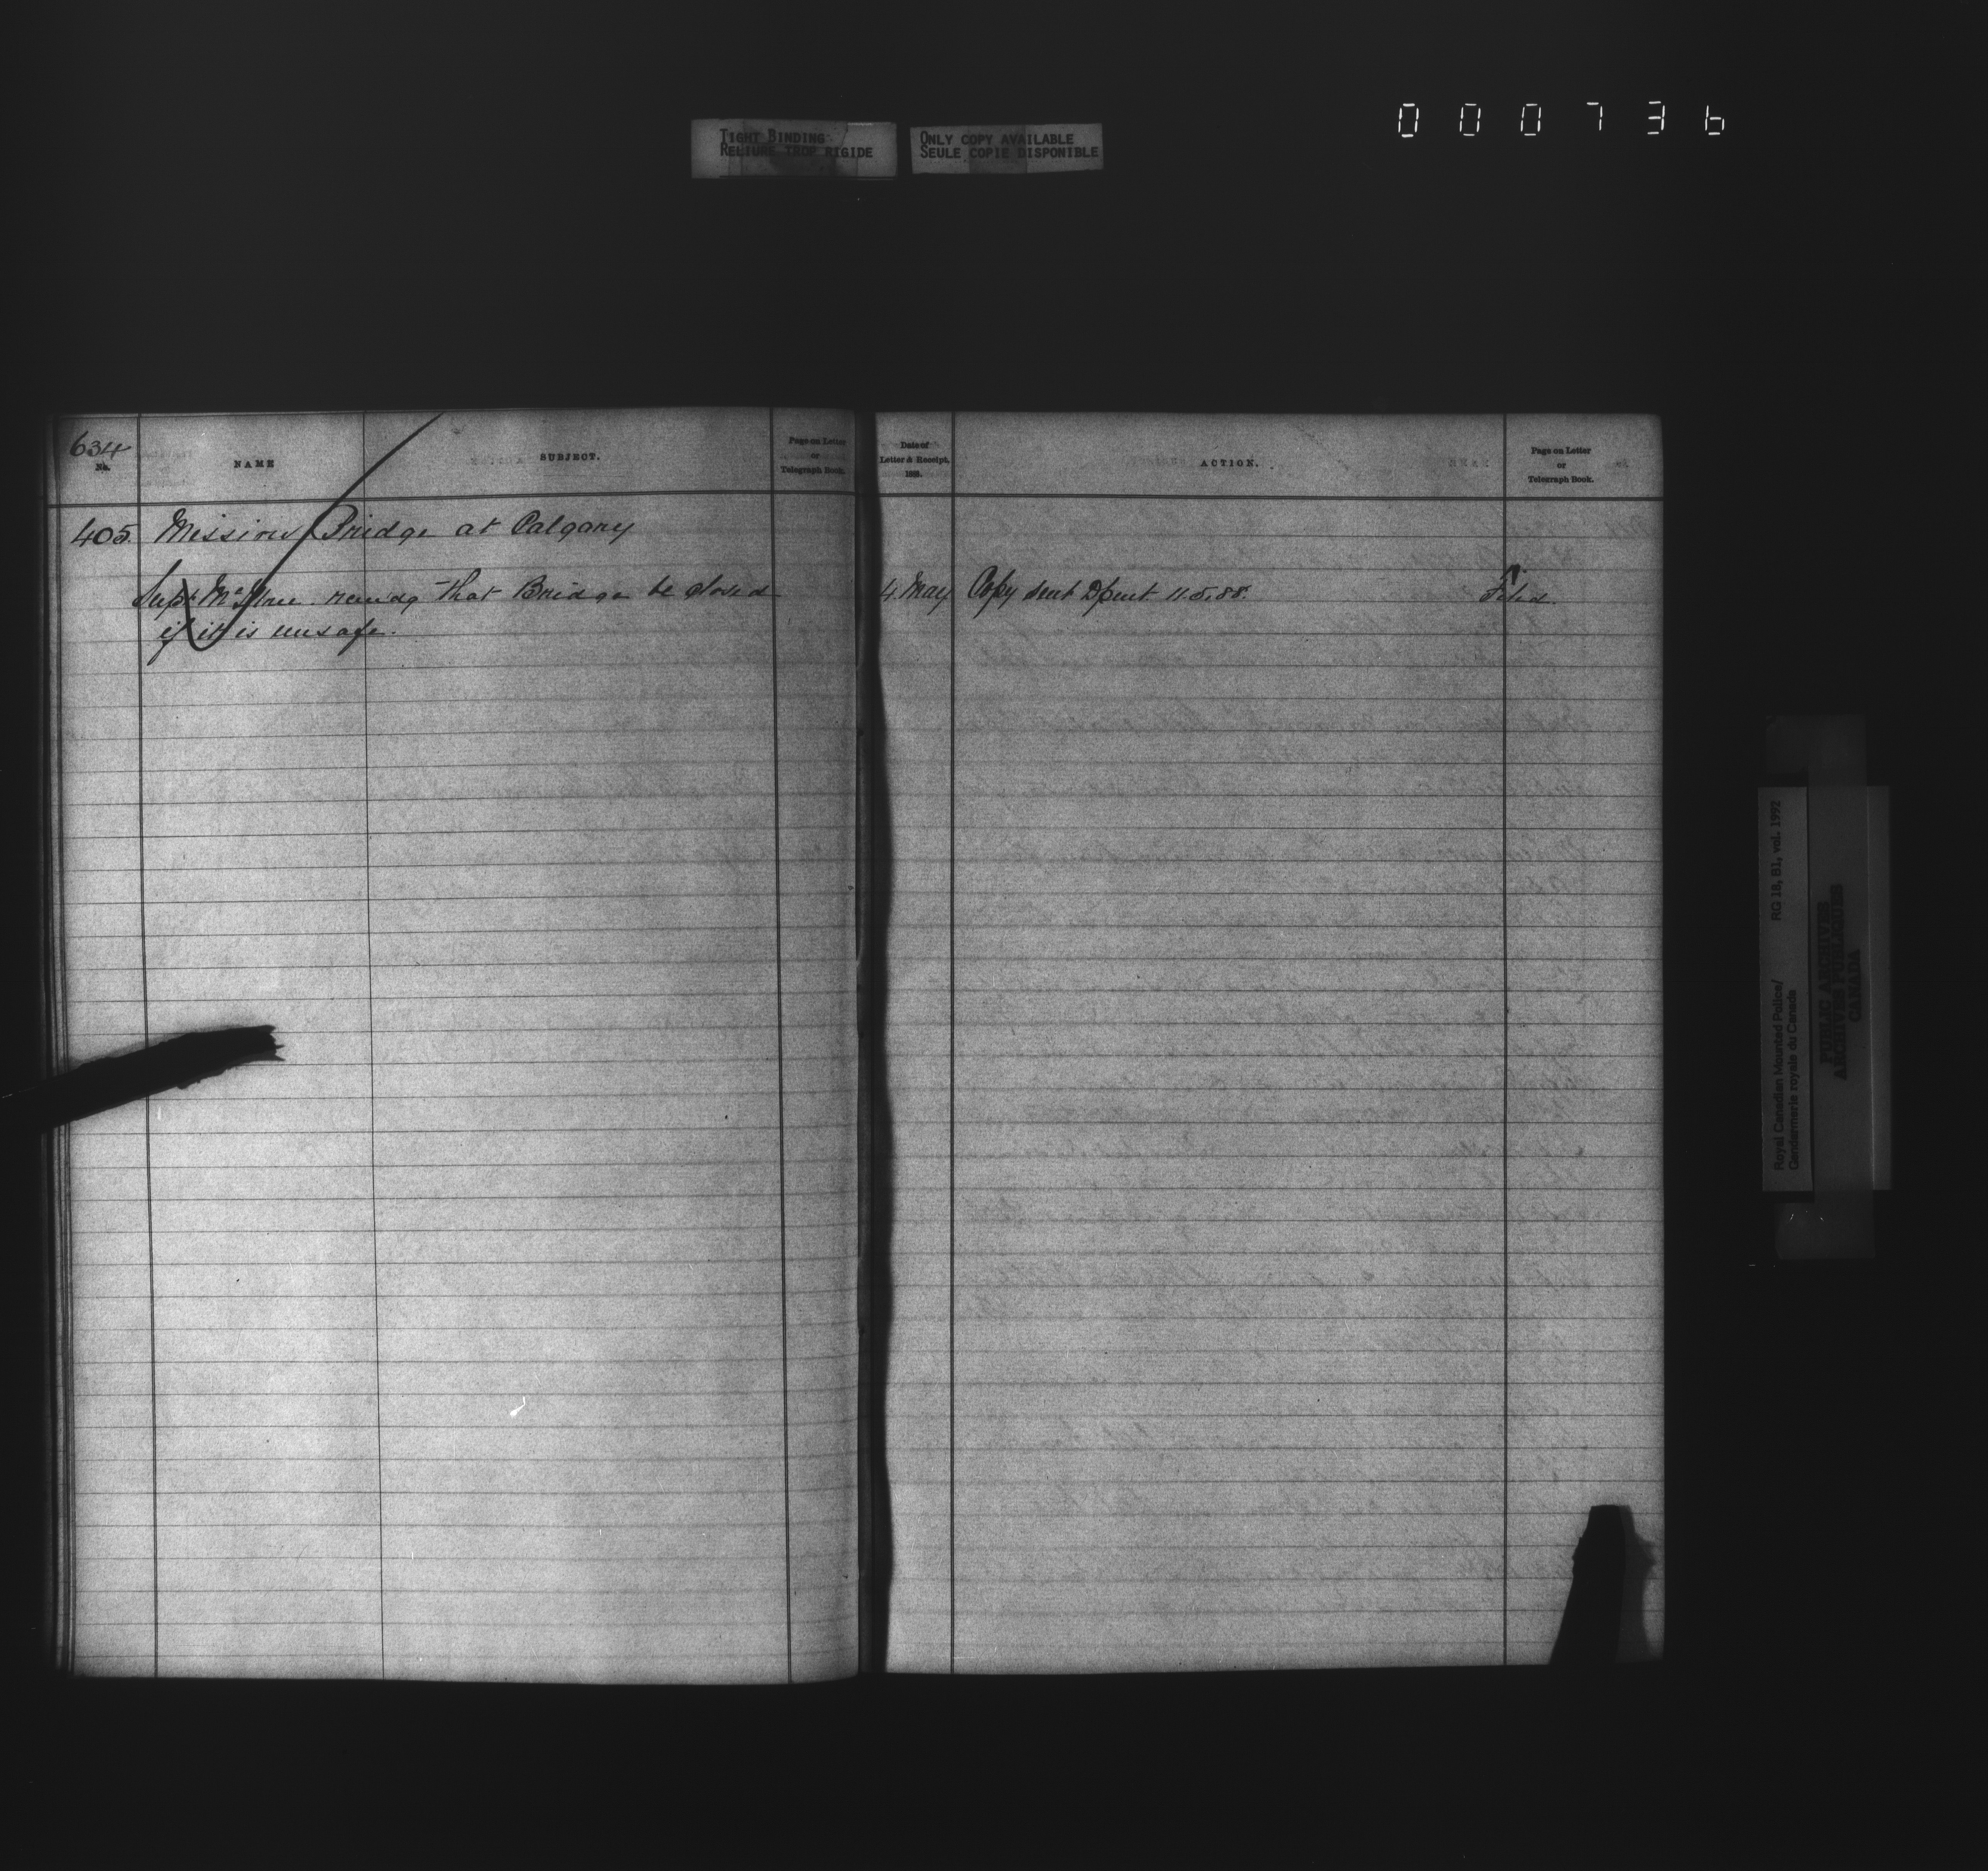 000736
TIGHT BINDING
RELIURE TROP RIGIDE
ONLY COPY AVAILABLE
SEULE COPIE DISPONIBLE
634
No.
NAME
SUBJECT.
Page on Letter
or
Telegraph Book.
Date of
Letter & Receipt.
1888.
ACTION.
Page on Letter
or
Telegraph Book.
405. Mission Bridge at Calgary
Supt that Bridge be closed
if it is unsafe.
4 May Copy sent 11.5.88. Filed
Royal Canadian Mounted Police/ RG 18, B1, vol. 1992
Gendarmerie royale du Canada
PUBLIC ARCHIVES
ARCHIVES PUBLIQUES
CANADA